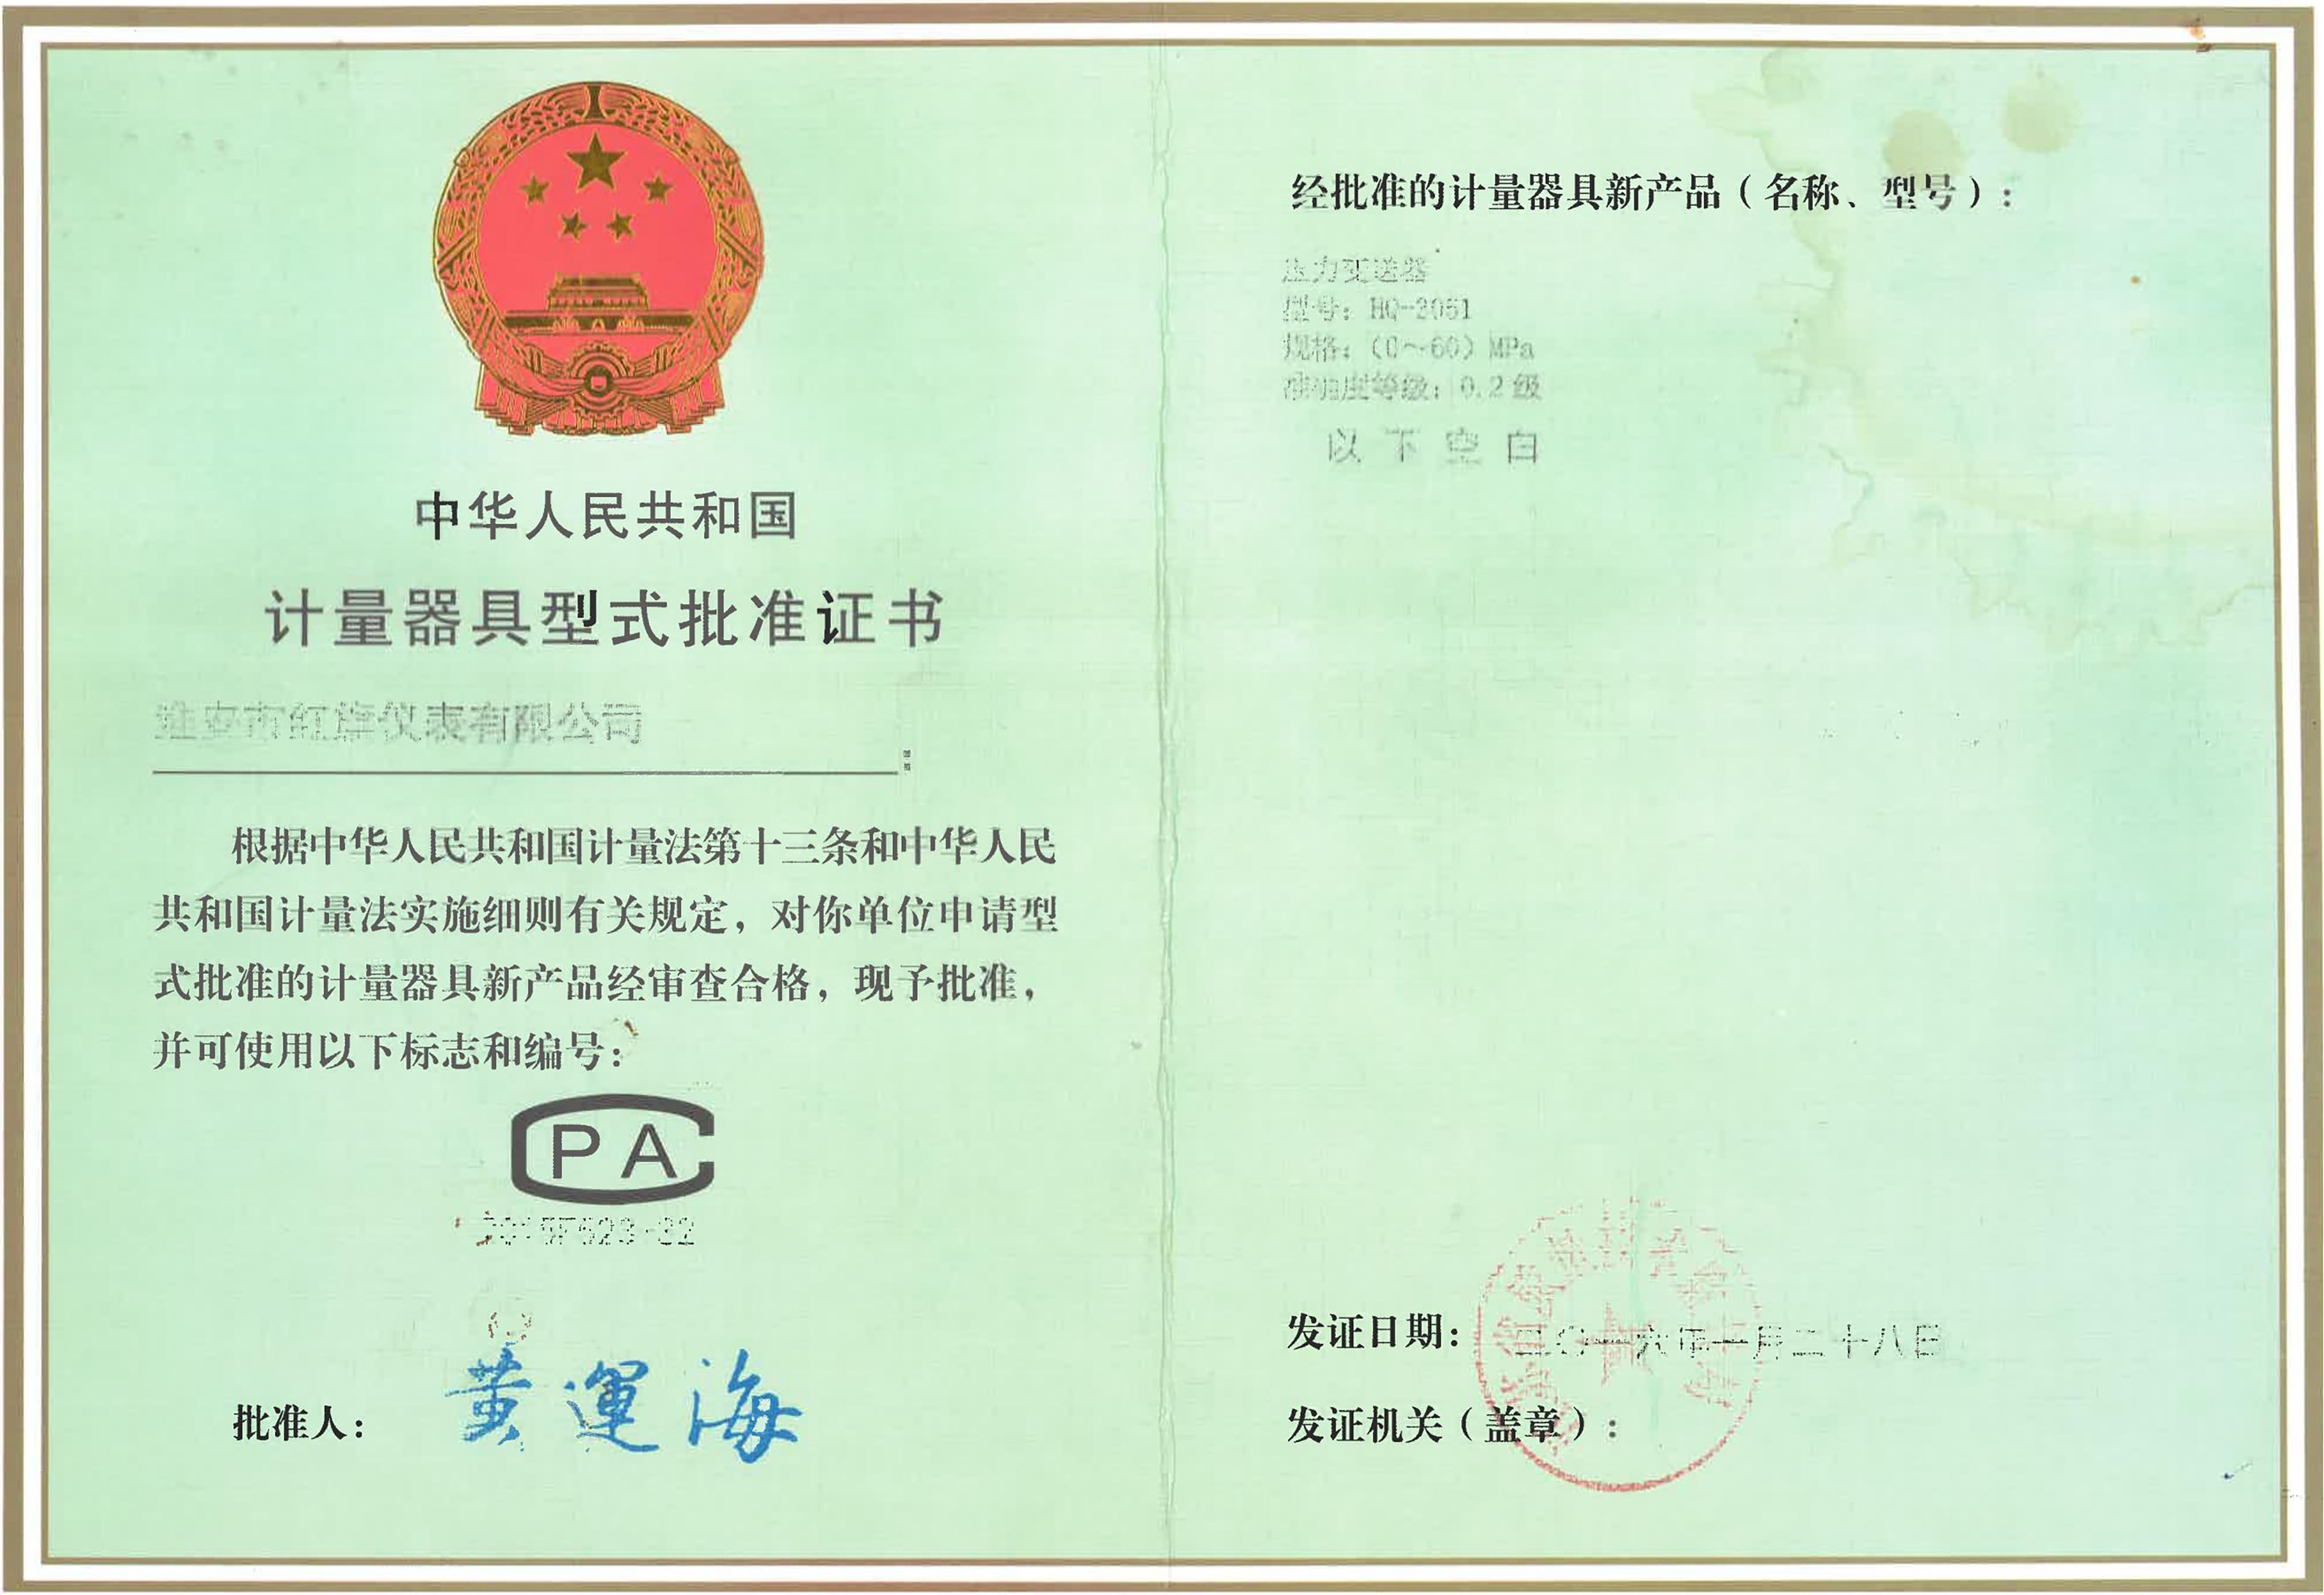 中华人民共和国
计量器具型式批准证书
雅安市红旗仪表有限公司
根据中华人民共和国计量法第十三条和中华人民
共和国计量法实施细则有关规定，对你单位申请型
式批准的计量器具新产品经审查合格，现予批准，
并可使用以下标志和编号：
CPA
批准人：
黄運海
经批准的计量器具新产品（名称、型号）：
压力变送器
型号：HQ-2051
规格：（0～60）MPa
准确度等级：0.2级
以下空白
发证日期：二〇一六年一月二十八日
发证机关（盖章）：